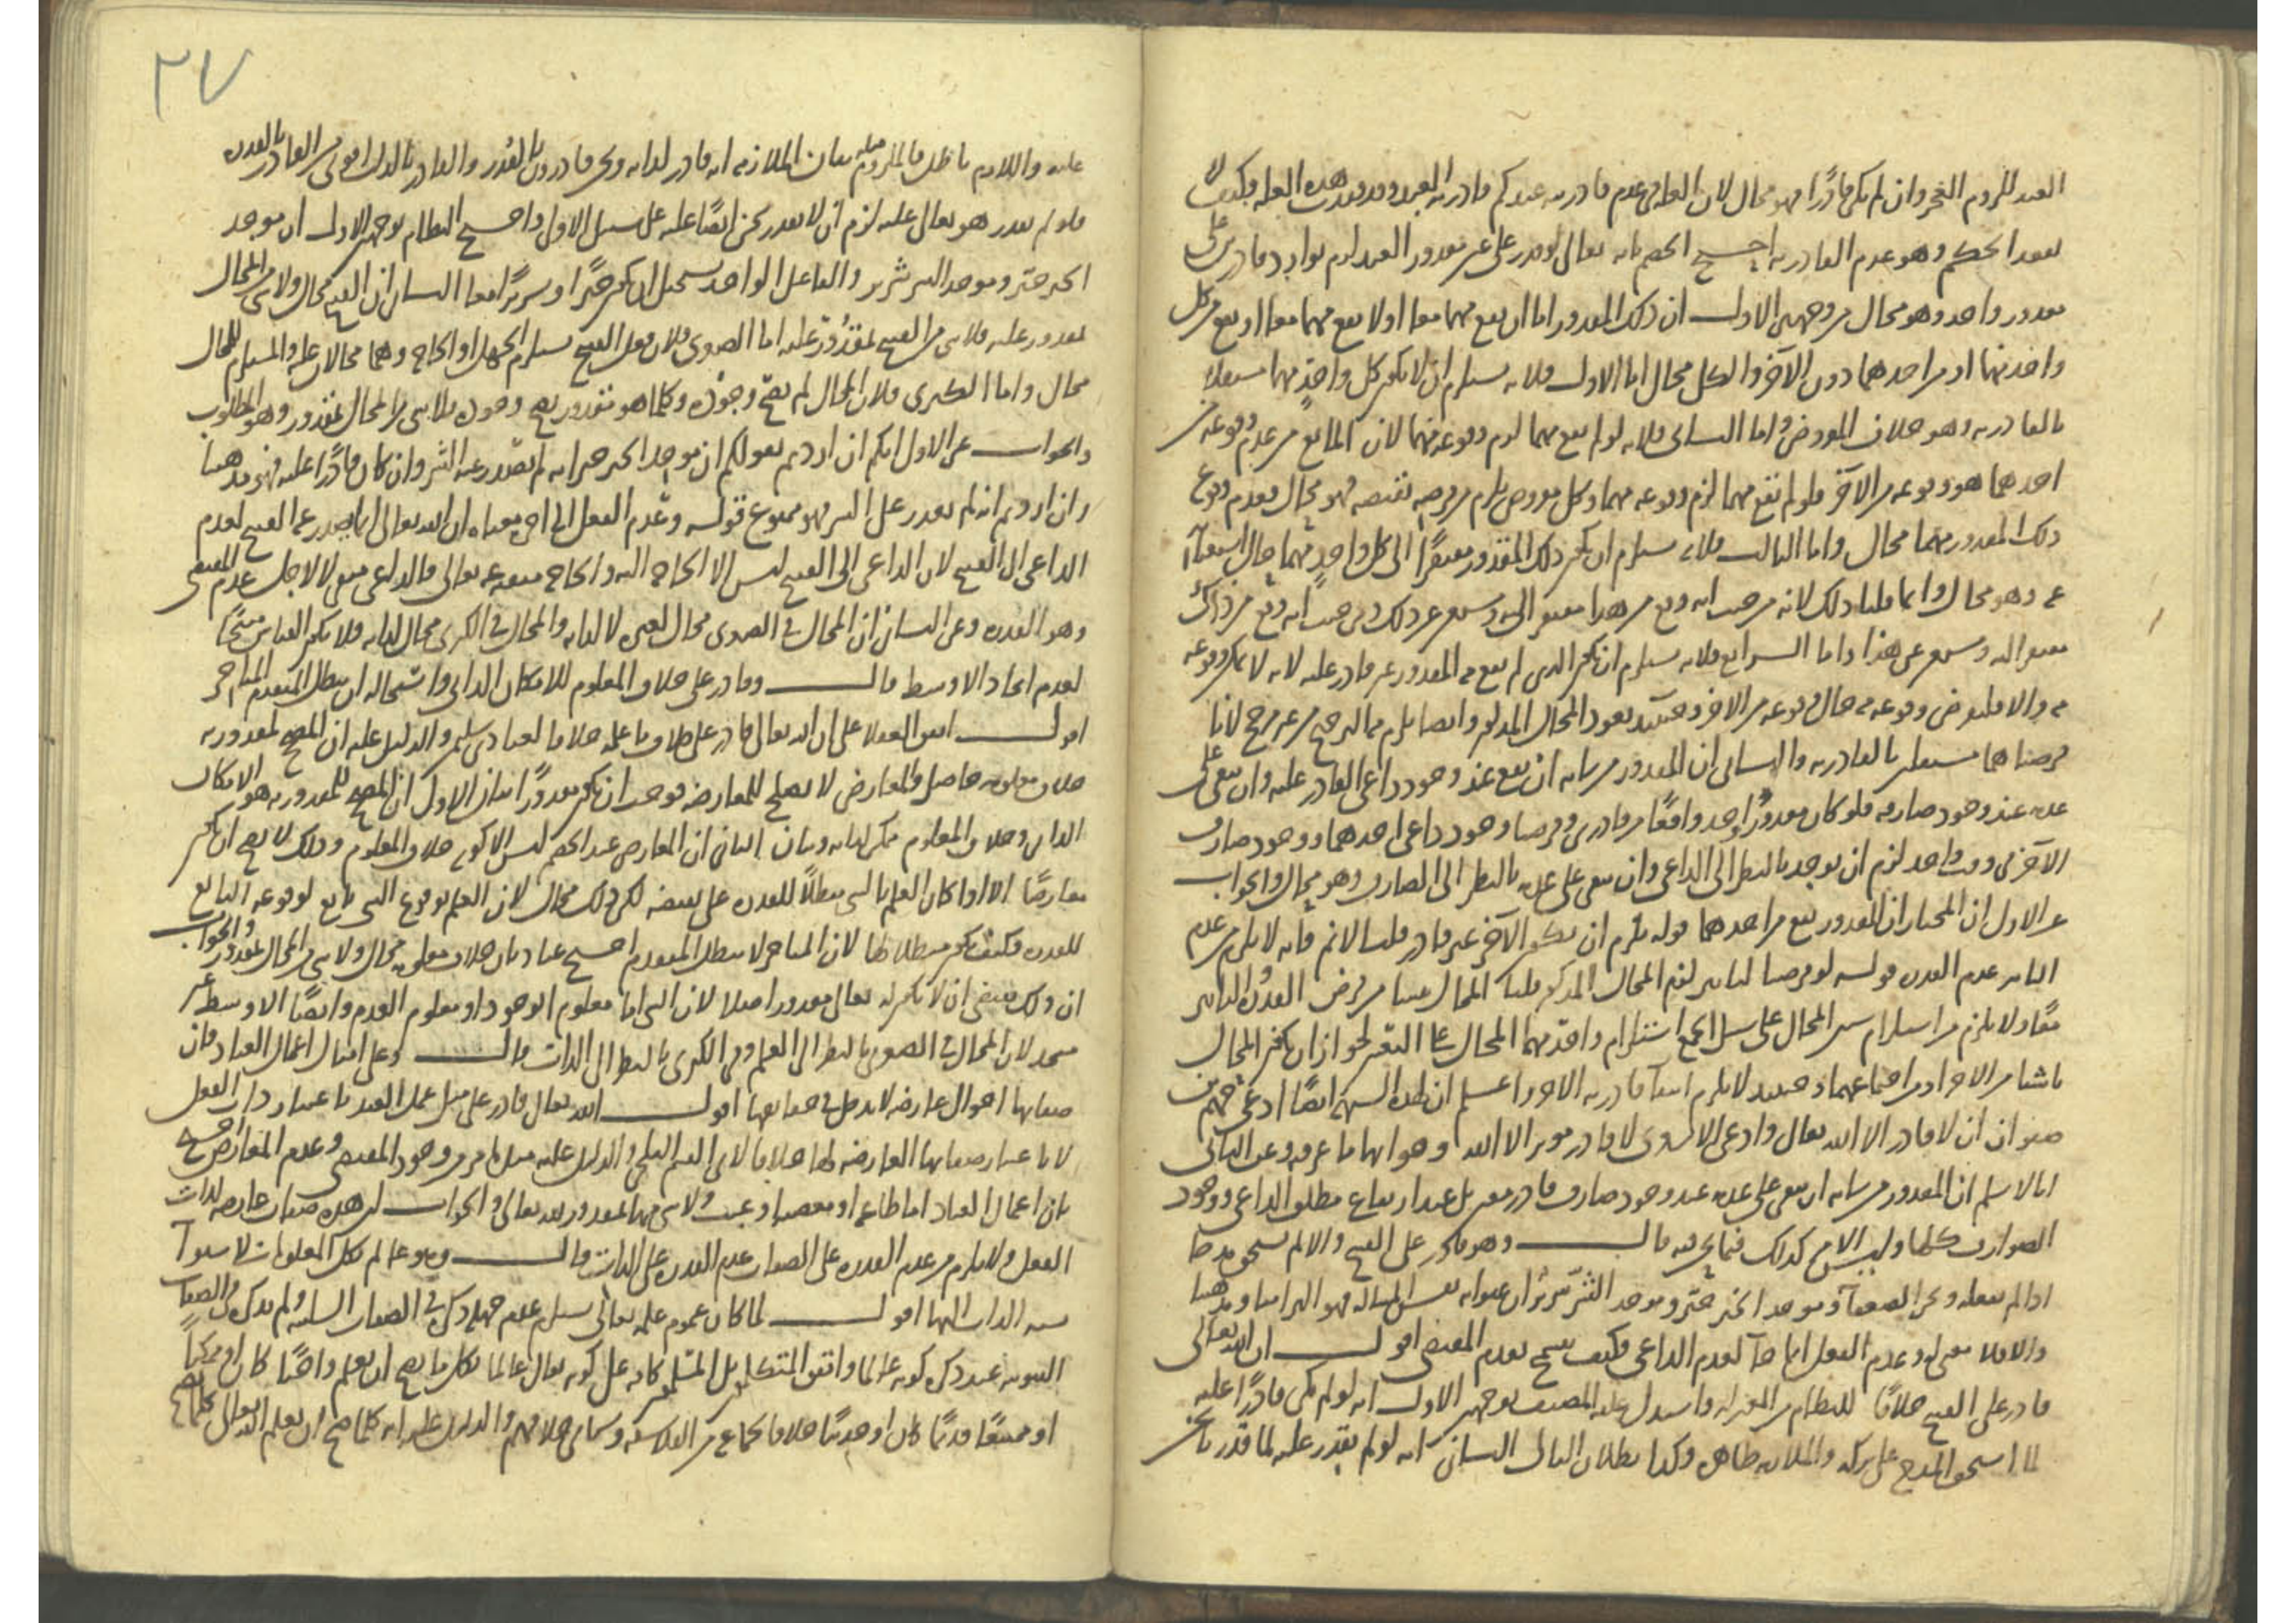 لا
العبد للزوم العجز وان لم يكن قادرًا فهو محال لان العلة فى عدم قادريته عندكم قادرية العبد وقد فقدت هذه العلة فكيف
بعد الحكم وهو عدم القادرية احتج الخصم بانه تعالى لو قدر على عين مقدور العبد لزم توارد قادرين على
مقدور واحد وهو محال من وجهين الاول ان ذلك المقدور اما ان يقع بهما معا او لا يقع بهما معا او يقع من كل
واحد منهما او من احدهما دون الآخر والكل محال اما الاول فلانه يستلزم ان لا يكون كل واحد منهما مستقلا
بالقادرية وهو خلاف المفروض واما الثانى فلانه لو لم يقع بهما لزم وقوعه بهما لان المانع من عدم وقوعه من
احدهما هو وقوعه من الآخر فلو لم يقع بهما لزم وقوعه بهما وكل مفروض يلزم من فرضه نقيضه فهو محال فعدم وقوع
ذلك المقدور بهما محال واما الثالث فلانه يستلزم ان يكون ذلك المقدور مفتقرًا الى كل واحد منهما حال استغنائه
عنه وهو محال وانما قلنا ذلك لانه من حيث انه وقع من هذا مفتقر اليه ومستغن عن ذلك ومن حيث انه وقع من ذاك
مفتقر اليه ومستغن عن هذا واما الرابع فلانه يستلزم ان يكون الذى لم يقع منه المقدور غير قادر عليه لانه لا يمكن وقوعه
منه والا فليفرض وقوعه منه حال وقوعه من الاخر وحينئذ يعود المحال المذكور وايضا يلزم منه الترجيح من غير مرجح لانا
فرضناهما مستقلين بالقادرية والثانى ان المقدور من شانه ان يقع عند وجود داعى القادر عليه وان يبقى على
عدمه عند وجود صارفه فلو كان مقدور واحد واقعًا من قادرين وفرضنا وجود داعى احدهما ووجود صارف
الآخر فى وقت واحد لزم ان يوجد بالنظر الى الداعى وان يبقى على عدمه بالنظر الى الصارف وهو محال والجواب
عن الاول ان المختار ان المقدور يقع من احدهما قوله يلزم ان يكون الآخر غير قادر قلنا لا نم فانه لا يلزم من عدم
التاثير عدم القدرة قوله لو فرضنا تاثيره لزم المحال المذكور قلنا المحال نشا من فرض القدرة والتاثير
معًا ولا يلزم من استلزام شيئين المحال على سبيل الجمع استلزام واحد منهما المحال على التعيين لجواز ان يكون المحال
ناشئا من الاخر او من اجتماعهما وحينئذ لا يلزم انتفا قادرية الاخر واعلم ان لهذه الشبهة ايضًا ادعى جهم بن
صفوان ان لا قادر الا الله تعالى وادعى الاشعرى لا قادر موثر الا الله وهو انها ما عرفه وعن الثانى
انا لا نسلم ان المقدور من شانه ان يبقى على عدمه عند وجود صارف قادر معين بل عند ارتفاع مطلق الداعى ووجود
الصوارف كلها وليس الامر كذلك فيما نحن فيه قال وهو قادر على القبيح والا لم يستحق مدحا
اذا لم يفعله ونحن الضعفا وموجد الخير خير وموجد الشر شرير ان عنوا به نفس المسالة فهو التزامنا ومذهبنا
والا فلا معنى له وعدم الفعل انما جا لعدم الداعى فكيف يصح بعدم المقتضى اقول ان الله تعالى
قادر على القبيح خلافًا للنظام من المعتزلة واستدل عليه المصنف بوجهين الاول انه لو لم يكن قادرًا عليه
لما استحق المدح على تركه والملازمة ظاهرة وكذا بطلان التالى الثانى انه لو لم يقدر عليه لما قدرنا نحن
٢٧
عليه واللازم باطل فالملزوم مثله بيان الملازمة انه قادر لذاته ونحن قادرون بالقدر والقادر بالذات اقوى من القادر بالقدرة
فلو لم يقدر هو تعالى عليه لزم ان لا نقدر نحن ايضًا عليه على سبيل الاولى واحتج النظام بوجهين الاول ان موجد
الخير خير وموجد الشر شرير والفاعل الواحد يستحيل ان يكون خيرًا وشريرًا معا الثانى ان القبيح محال ولا شى من المحال
بمقدور عليه فلا شى من القبيح بمقدور عليه اما الصغرى فلان فعل القبيح يستلزم الجهل او الحاجة وهما محالان عليه والمستلزم للمحال
محال واما الكبرى فلان المحال لم يصح وجوده وكلما هو مقدور يصح وجوده فلا شى من المحال بمقدور وهو المطلوب
والجواب عن الاول انكم ان اردتم بقولكم ان موجد الخير خير انه لم يصدر عنه الشر وان كان قادرًا عليه فهو مذهبنا
وان اردتم انه لم يقدر على الشر فهو ممنوع قوله وعدم الفعل الى اخره معناه ان الله تعالى انما لم يصدر عنه القبيح لعدم
الداعى الى القبيح لان الداعى الى القبيح ليس الا الحاجة اليه والحاجة منتفية عنه تعالى فالداعى منتفى لا لاجل عدم المقتضى
وهو القدرة وعن الثانى ان المحال فى الصغرى محال لغيره لا لذاته والمحال فى الكبرى محال لذاته فلا يكون القياس منتجًا
لعدم اتحاد الاوسط قال وقادر على خلاف المعلوم للامكان الذاتى واستحالة ان يبطل المتقدم المتاخر
اقول اتفق العقلا على ان الله تعالى قادر على خلاف ما علمه خلافا لعباد بن سليمن والدليل عليه ان المصحح لمقدورية
خلاف معلومه حاصل والمعارض لا يصلح للمعارضة فوجب ان يكون مقدورًا بيان الاول ان المصحح للمقدورية هو الامكان
الذاتى وخلاف المعلوم ممكن لذاته وبيان الثانى ان المعارض عند الخصم ليس الا كونه خلاف المعلوم وذلك لا يصح ان يكون
معارضًا الا اذا كان العلم بالشى مبطلًا للقدرة على نقيضه لكن ذلك محال لان العلم بوقوع الشى تابع لوقوعه التابع
للقدرة فكيف يكون مبطلا لها لان المتاخر لا يبطل المتقدم احتج عباد بان خلاف معلومه محال ولا شى من المحال بمقدور والجواب
ان ذلك يقتضى ان لا يكون له تعالى مقدور اصلا لان الشى اما معلوم الوجود او معلوم العدم وايضًا الاوسط غير
متحد لان المحال فى الصغرى بالنظر الى العلم وفى الكبرى بالنظر الى الذات قال وعلى امثال اعمال العباد فان
صفاتها احوال عارضة لا يدخل فى حقايقها اقول الله تعالى قادر على مثل عمل العبد باعتبار ذات الفعل
لا باعتبار صفاتها العارضة لها خلافا لابى القسم البلخى والدليل عليه مثل ما مر من وجود المقتضى وعدم المعارض احتج
بان اعمال العباد اما طاعة او معصية او عبث ولا شى منها بمقدور لله تعالى والجواب ان هذه صفات عارضة لذات
الفعل ولا يلزم من عدم القدرة على الصفات عدم القدرة على الذات قال وهو عالم بكل المعلومات لاستوا
نسبة الذات اليها اقول لما كان عموم علمه تعالى يستلزم عدم جهله ذكره فى الصفات السلبية ولم يذكره فى الصفات
الثبوتية عند ذكر كونه عالما واتفق المتكلمون بل المسلمون كافة على كونه تعالى عالما بكل ما يصح ان يعلم واجبًا كان او ممكنًا
او ممتنعًا قديمًا كان او حديثًا خلافا لجماعة من الفلاسفة وسياتى خلافهم والدليل عليه انه كلما صح ان يعلم الله تعالى كلما يصح